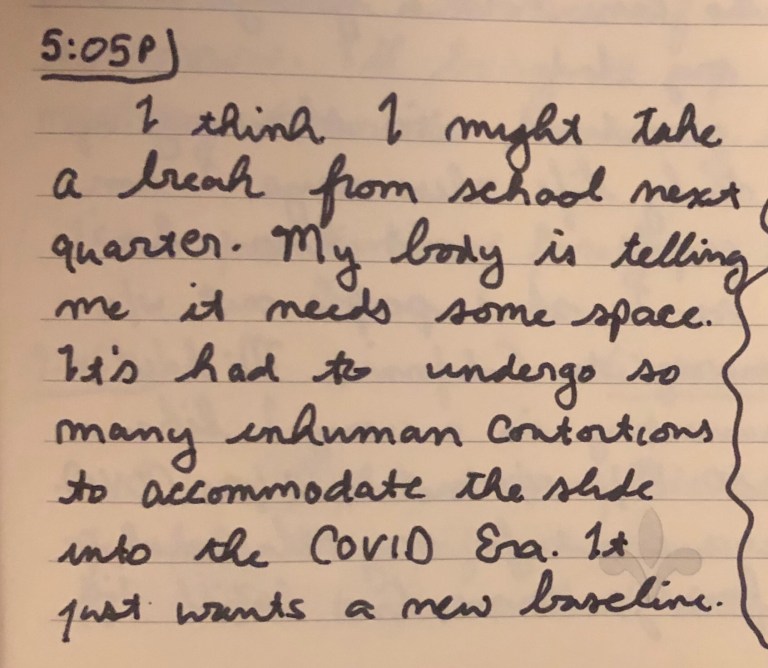 5:05P)
I think I might take
a break from school next
quarter. My body is telling
me it needs some space.
It's had to undergo so
many inhuman contortions
to accommodate the slide
into the COVID Era. It
just wants a new baseline.